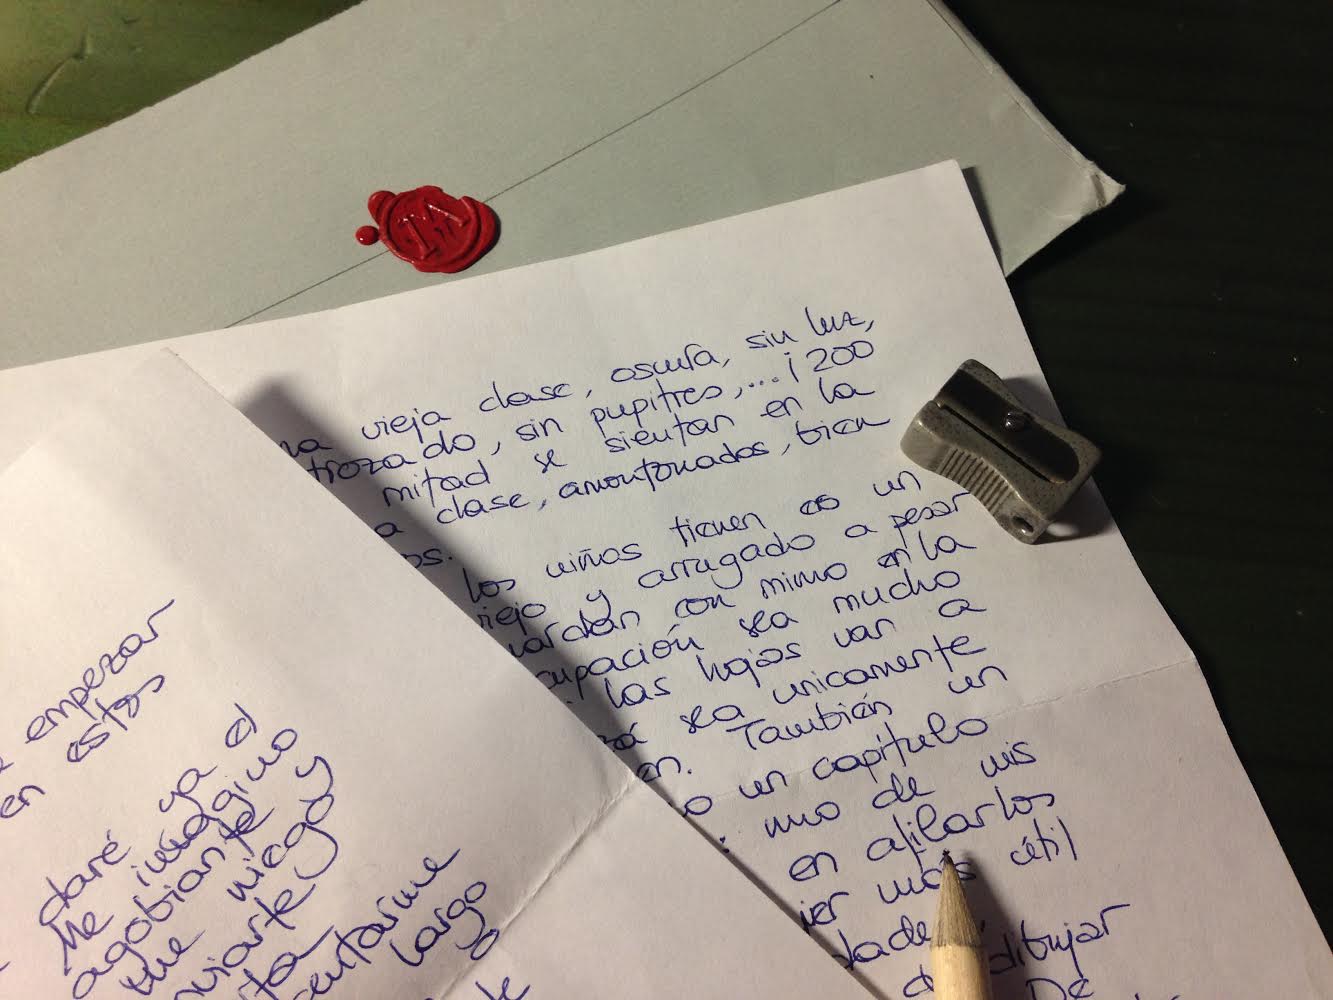 na vieja clase, oscura, sin luz,
trozado, sin pupitres,... ¡200
mitad se sientan en la
a clase, amontonados, bien
os.
los niños tienen es un
viejo y arrugado a pesar
uardan con mimo en la
cupación sea mucho
las hojas van a
zá sea unicamente
en. También un
o un capítulo
: uno de mis
en afilarlos
ier más útil
dade
dibujar
De
empezar
en estos
daré ya el
Me imagino
agobiante
me niego y
nviarte)
sentarme
largo